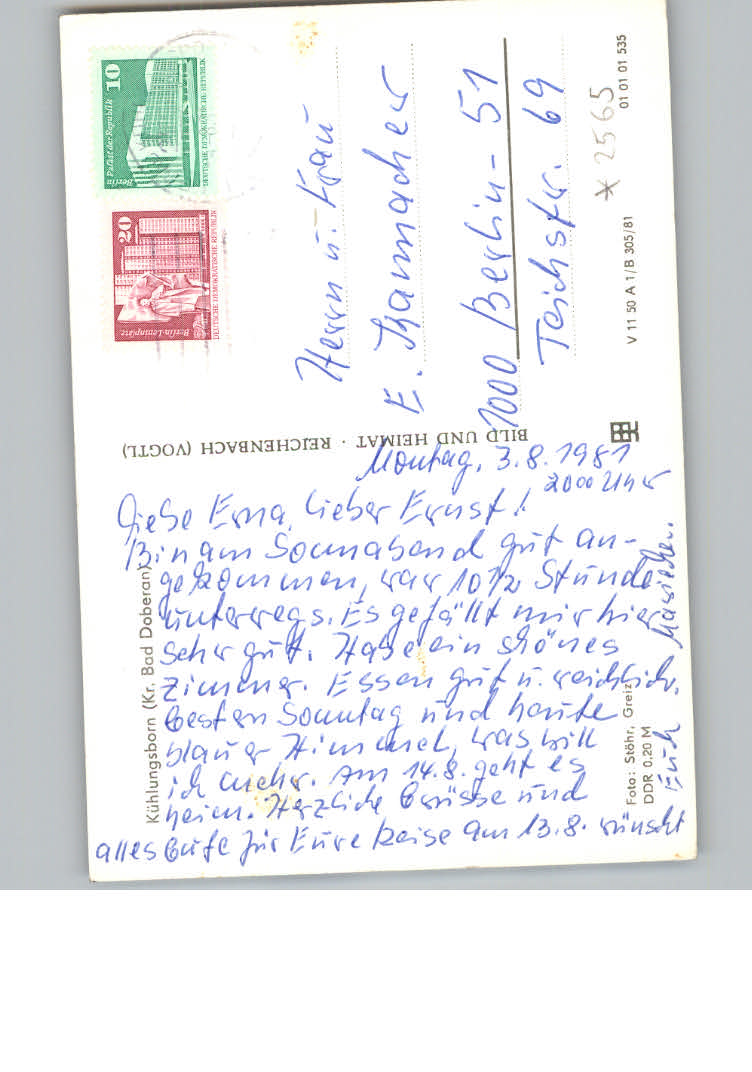 Montag, 3.8.1981
20⁰⁰ Uhr
Liebe Erna, lieber Ernst!
Bin am Sonnabend gut an-
gekommen, war 10½ Stunde
unterwegs. Es gefällt mir hier
sehr gut. Habe ein schönes
Zimmer. Essen gut u. reichlich.
Gestern Sonntag und heute
blauer Himmel, was will
ich mehr. Am 14.8. geht es
heim. Herzliche Grüsse und
alles Gute für Eure Reise am 13.8. wünscht
Euch
Herrn u. Frau
E. Kannacher
1000 Berlin-51
Teichstr. 69
10
Palast der Republik
Berlin
DEUTSCHE DEMOKRATISCHE REPUBLIK
20
Berlin-Leninplatz
DEUTSCHE DEMOKRATISCHE REPUBLIK
BILD UND HEIMAT · REICHENBACH (VOGTL)
Kühlungsborn (Kr. Bad Doberan)
Foto: Stöhr, Greiz
DDR 0.20 M
V 11 50 A 1/B 305/81
01 01 01 535
* 2565